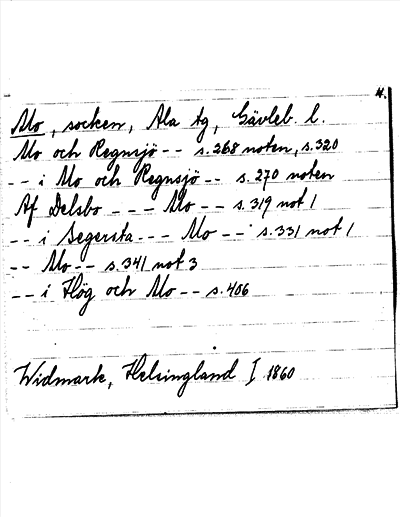 H.
Mo, socken, Ala tg, Gävleb. l.
Mo och Regnsjö -- s. 268 noten, s. 320
-- i Mo och Regnsjö -- s. 270 noten
Af Delsbo --- Mo -- s. 319 not 1
-- i Segersta --- Mo -- s. 331 not 1
-- Mo -- s. 341 not 3
-- i Hög och Mo -- s. 406
Widmark, Helsingland I 1860